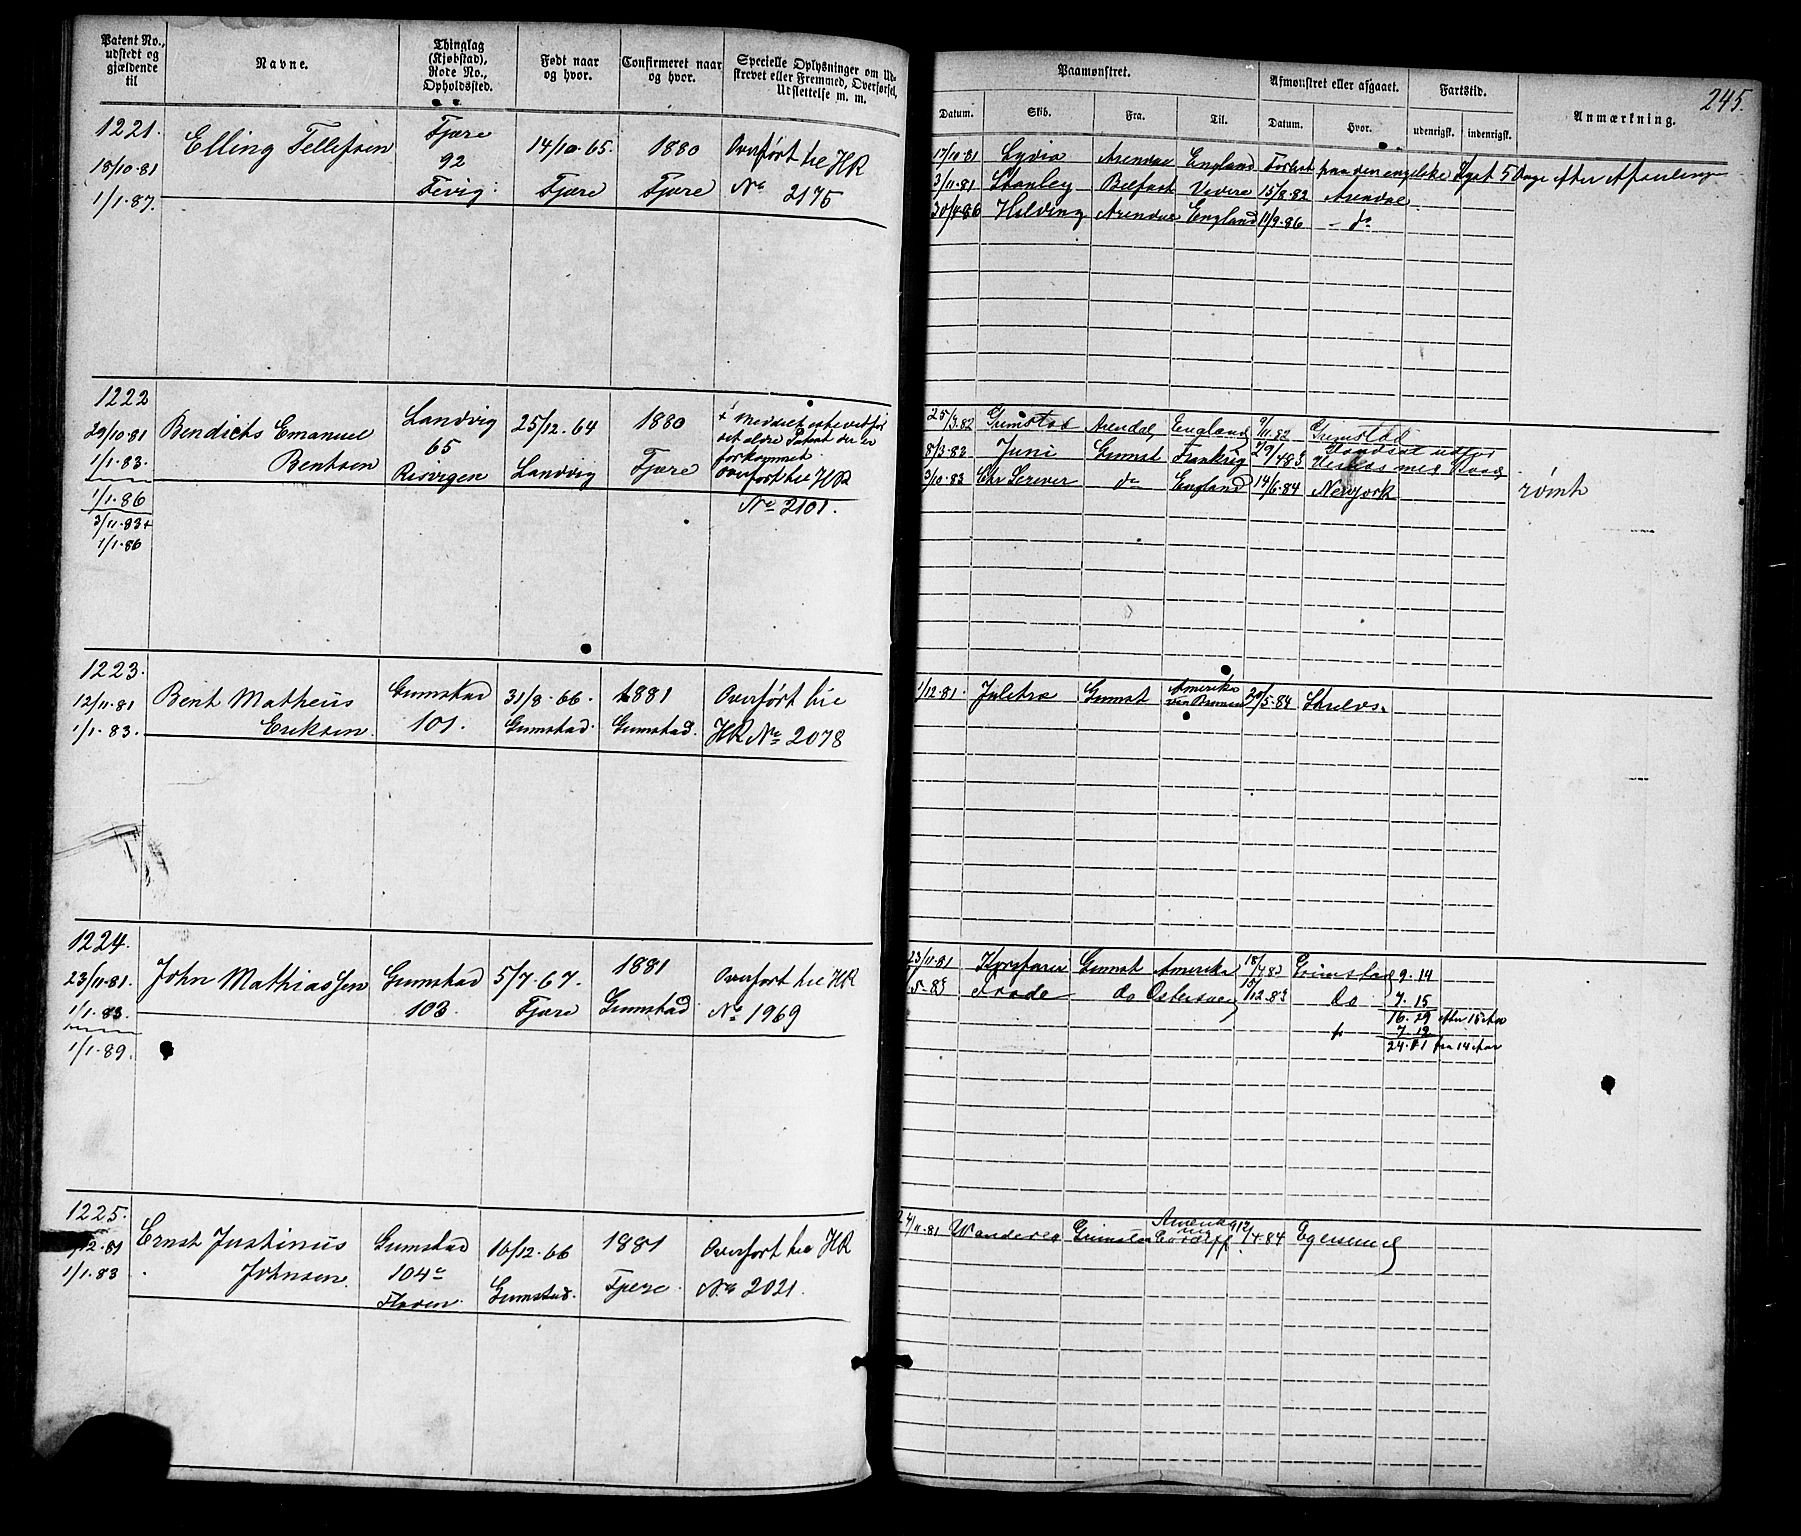 Patent No., udstedt og gjældende til
Navne.
Thinglag (Kjøbstad), Rode No., Opholdssted.
Født naar og hvor.
Confirmeret naar og hvor.
Specielle Oplysninger om Udskrevet eller Fremmed, Overførsel, Udslettelse m. m.
Paamønstret.
Datum. Skib. Fra. Til.
Afmønstret eller afgaaet.
Datum. Hvor.
Fartstid.
udenrigsk. indenrigsk.
Anmærkning.
245.
1221.
18/10.81
1/1.87.
Elling Tellefsen
Fjære
92
Fevig.
14/10.65.
Fjære
1880
Fjære
Overført til HR
No 2175
17/10.81 Lydia Arendal England Forlist paa den engelske Kyst 5 Dage efter
3/11.81 Stanley Belfast 15/8.82 Arendal
30/4.86 Hilding Arendal England 11/9.86 - do
1222
29/10.81
1/1.83.
1/1.86
3/11.83+
1/1.86
Bendicts Emanuel
Bentsen
Landvig
65
Resvigen
25/12.64
Landvig
1880
Fjære
det ældre Patent der er
forkommet.
Overført til HR
No 2101.
25/3.82 Grimstad Arendal England 9/11.82 Grimstad
8/3.83 Juni Grimst Frankrig
3/10.83 Chr Scriver do England 14/6.84 Newyork
rømt
1223.
12/11.81
1/1.83.
Bent Matheus
Eriksen
Grimstad
101.
31/8.66.
Grimstad.
1881
Grimstad.
Overført til
HR No 2078
1/12.81. Grimst Amerika 20/5.84
1224.
23/11.81.
1/1.83.
1/1.89.
John Mathiassen
Grimstad
103.
5/7.67.
Fjære
1881
Grimstad
Overført til HR
No 1969
23/11.81 Korsfarer Grimst Amerika Grimstad 9.14
Frode do Østersøen 15/12.83 do 7.15
16.29 efter 15 Aar
7.12
24.11 fra 14 Aar
1225.
/12.81
1/1.83
Ernst Justinus
Johnsen.
Grimstad
104c
16/12.66
Grimstad.
1881
Fjære.
Overført til HR
No 2021.
24/11.81 Grimstad 4.84 Egersund